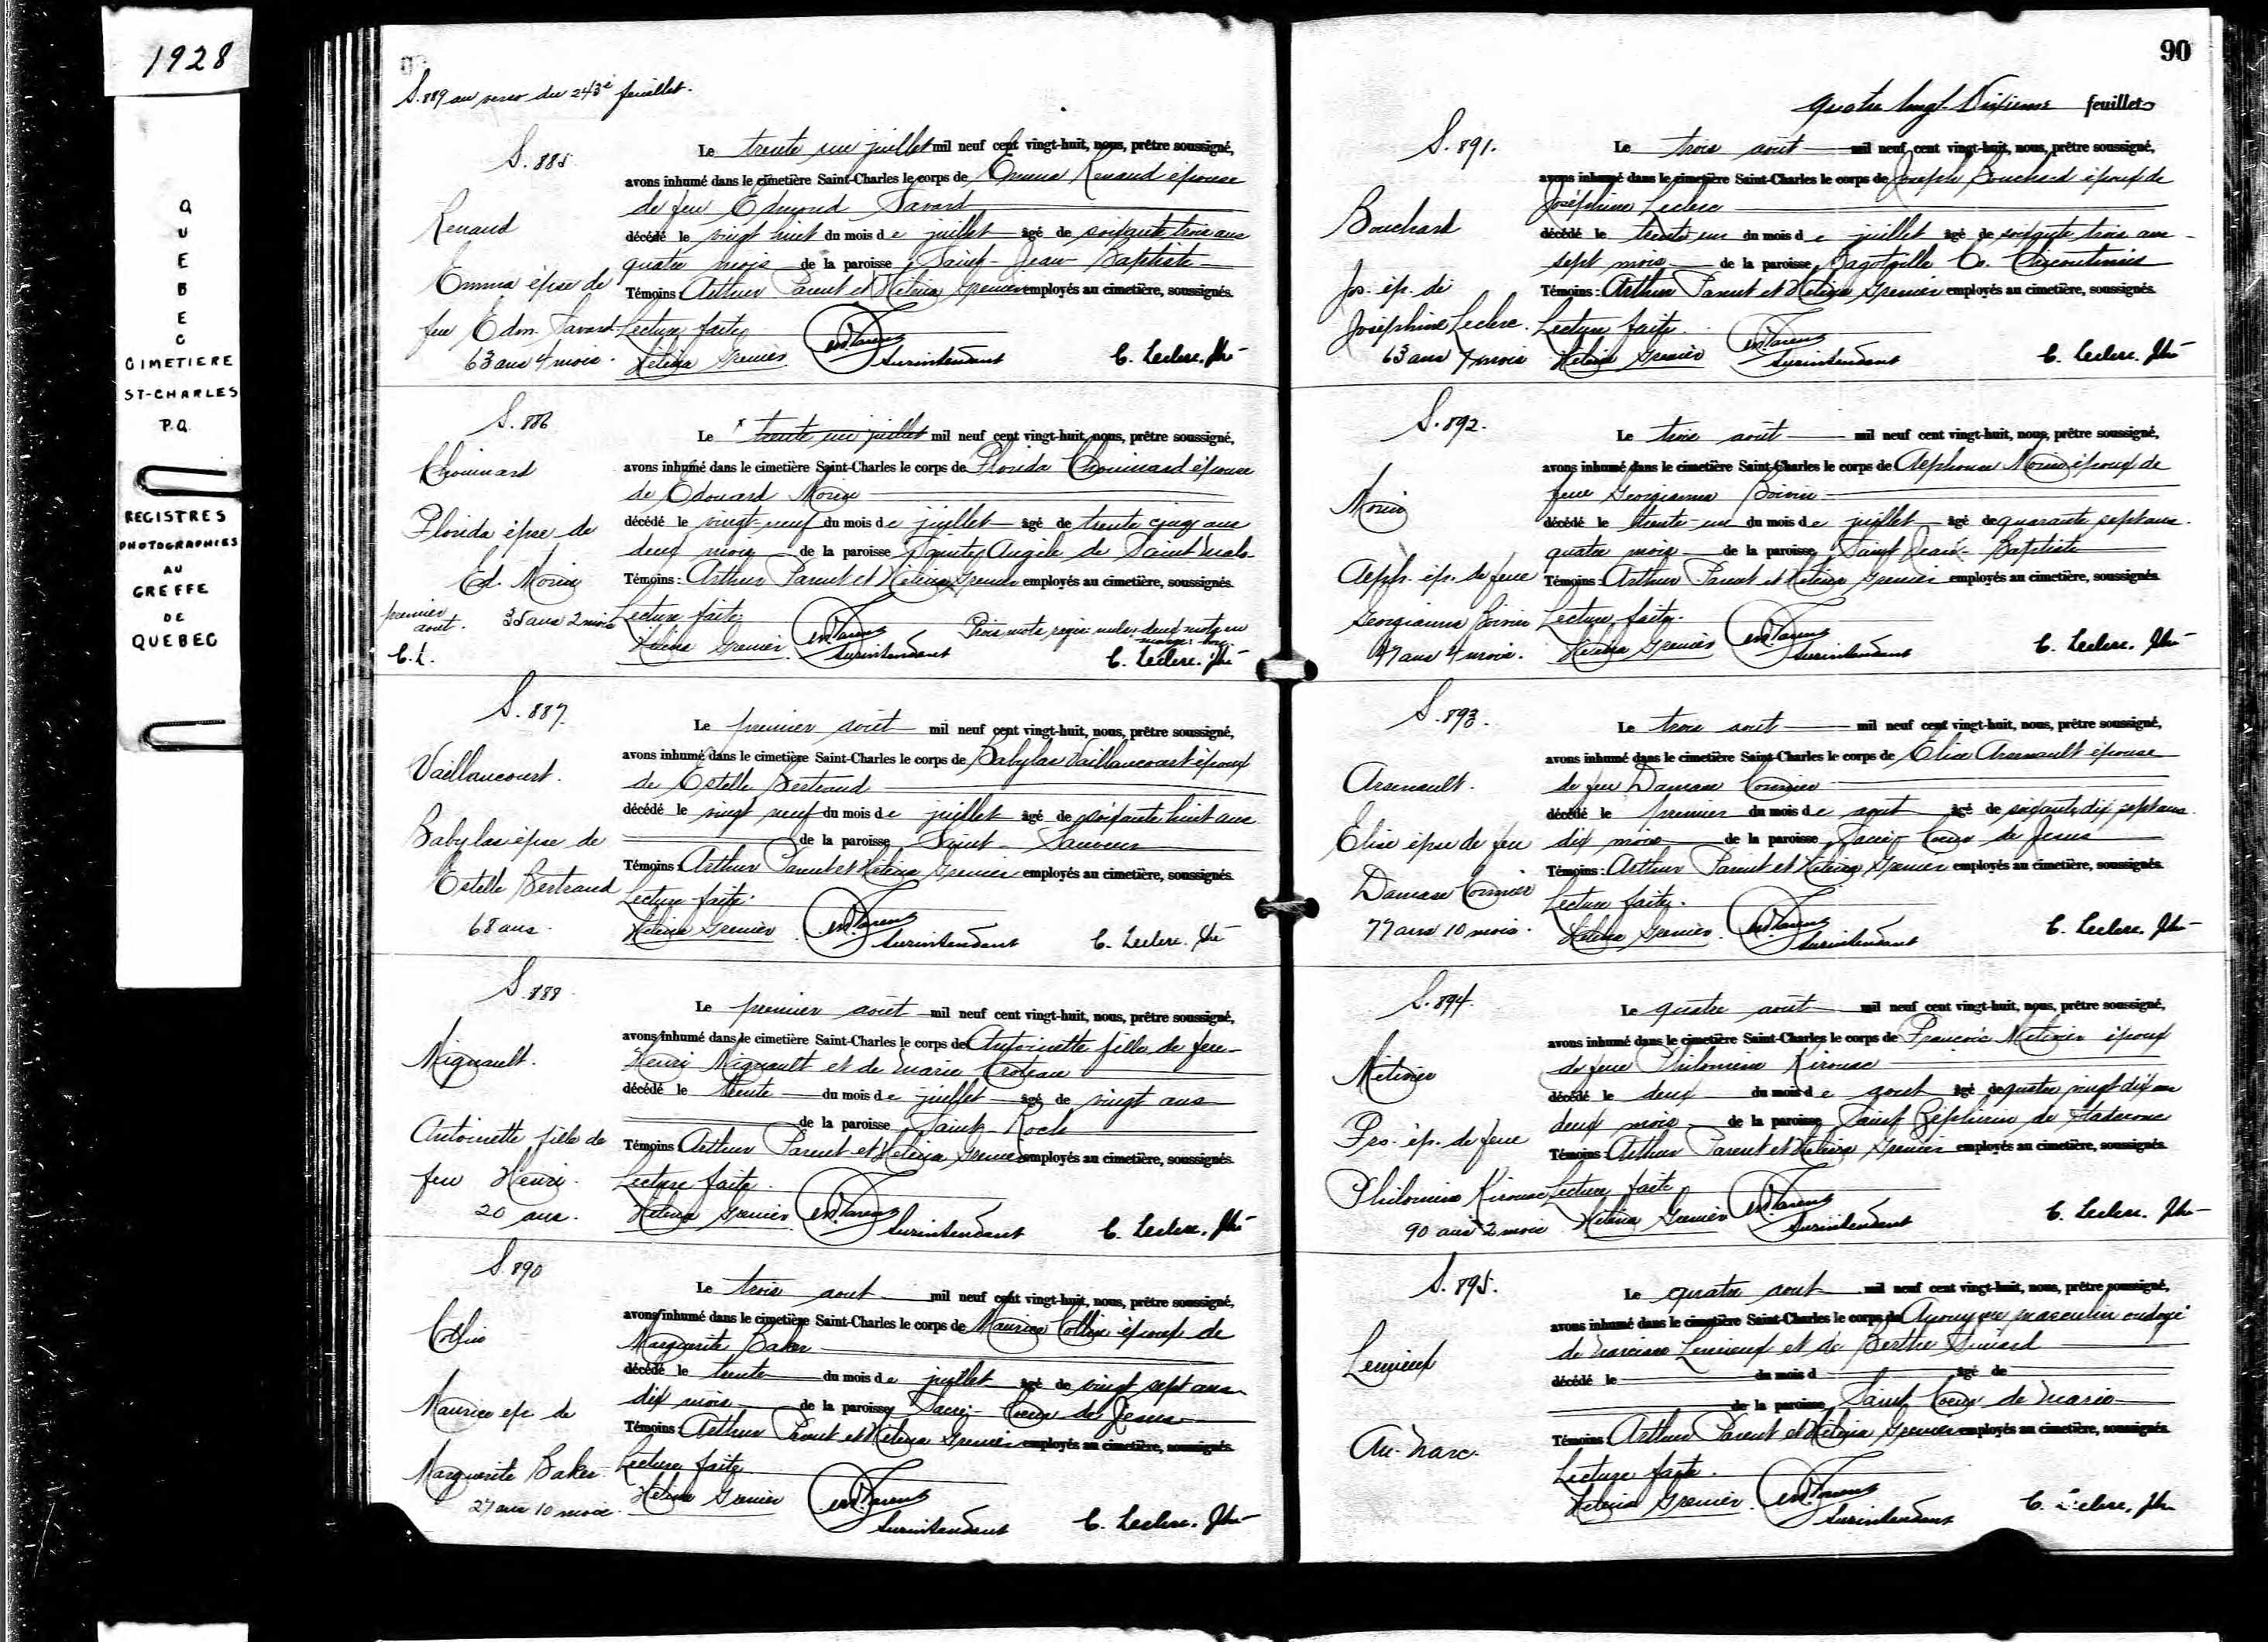 1928
QUEBEC
CIMETIERE
ST-CHARLES
P.Q.
REGISTRES
PHOTOGRAPHIES
AU
GREFFE
DE
QUEBEC
S. 889 au verso du 243e feuillet.
S. 885
Renaud
Emma épse de
feu Edm. Savard
63 ans 4 mois.
Le trente un juillet mil neuf cent vingt-huit, nous, prêtre soussigné,
avons inhumé dans le cimetière Saint-Charles le corps de Emma Renaud épouse
de feu Edmond Savard
décédé le vingt huit du mois de juillet âgé de soixante trois ans
quatre mois de la paroisse Saint-Jean-Baptiste
Témoins: Arthur Parent et Héléna Grenier employés au cimetière, soussignés.
Lecture faite
Héléna Grenier Surintendant C. Leclerc. Ptre
S. 886
Chouinard
Florida épse de
Ed. Morin
35 ans 2 mois
premier
aout.
C.L.
Le x trente un juillet mil neuf cent vingt-huit, nous, prêtre soussigné,
avons inhumé dans le cimetière Saint-Charles le corps de Florida Chouinard épouse
de Edouard Morin
décédé le vingt-neuf du mois de juillet âgé de trente cinq ans
deux mois de la paroisse Sainte Angèle de Saint Malo
Témoins: Arthur Parent et Héléna Grenier employés au cimetière, soussignés.
Lecture faite Trois mots rayés nuls, deux mots en
marge bons
Héléna Grenier Surintendant C. Leclerc. Ptre
S. 887.
Vaillancourt.
Babylas épse de
Estelle Bertrand
68 ans.
Le premier août mil neuf cent vingt-huit, nous, prêtre soussigné,
avons inhumé dans le cimetière Saint-Charles le corps de Babylas Vaillancourt époux
de Estelle Bertrand
décédé le vingt neuf du mois de juillet âgé de soixante huit ans
de la paroisse Saint-Sauveur
Témoins: Arthur Parent et Héléna Grenier employés au cimetière, soussignés.
Lecture faite.
Héléna Grenier Surintendant C. Leclerc. Ptre
S. 888
Mignault.
Antoinette fille de
feu Henri.
20 ans.
Le premier août mil neuf cent vingt-huit, nous, prêtre soussigné,
avons inhumé dans le cimetière Saint-Charles le corps de Antoinette fille de feu
Henri Mignault et de Marie Croteau
décédé le trente du mois de juillet âgé de vingt ans
de la paroisse Saint-Roch
Témoins: Arthur Parent et Héléna Grenier employés au cimetière, soussignés.
Lecture faite.
Héléna Grenier Surintendant C. Leclerc. Ptre
S. 890
Collin
Maurice ép. de
Marguerite Baker
27 ans 10 mois.
Le trois aout mil neuf cent vingt-huit, nous, prêtre soussigné,
avons inhumé dans le cimetière Saint-Charles le corps de Maurice Collin époux de
Marguerite Baker
décédé le trente du mois de juillet âgé de vingt sept ans
dix mois de la paroisse Sacré-Coeur de Jésus
Témoins: Arthur Parent et Héléna Grenier employés au cimetière, soussignés.
Lecture faite
Héléna Grenier Surintendant C. Leclerc. Ptre
90
quatre vingt Dixieme feuillet
S. 891.
Bouchard
Jos. ép. de
Joséphine Leclerc.
63 ans 7 mois
Le trois août mil neuf cent vingt-huit, nous, prêtre soussigné,
avons inhumé dans le cimetière Saint-Charles le corps de Joseph Bouchard époux de
Joséphine Leclerc
décédé le trente un du mois de juillet âgé de soixante trois ans
sept mois de la paroisse Bagotville Co. Chicoutimi
Témoins: Arthur Parent et Héléna Grenier employés au cimetière, soussignés.
Lecture faite.
Héléna Grenier Surintendant C. Leclerc. Ptre
S. 892.
Morin
Alph. ép. de feue
Georgianna Boivin
47 ans 4 mois.
Le trois août mil neuf cent vingt-huit, nous, prêtre soussigné,
avons inhumé dans le cimetière Saint-Charles le corps de Alphonse Morin époux de
feue Georgianna Boivin
décédé le trente-un du mois de juillet âgé de quarante sept ans.
quatre mois de la paroisse Saint Jean-Baptiste
Témoins: Arthur Parent et Héléna Grenier employés au cimetière, soussignés.
Lecture faite.
Héléna Grenier Surintendant C. Leclerc. Ptre
S. 893.
Arsenault.
Elise épse de feu
Damase Cormier
77 ans 10 mois.
Le trois août mil neuf cent vingt-huit, nous, prêtre soussigné,
avons inhumé dans le cimetière Saint-Charles le corps de Elise Arsenault épouse
de feu Damase Cormier
décédé le premier du mois de aout âgé de soixante dix sept ans
dix mois de la paroisse Sacré-Coeur de Jésus
Témoins: Arthur Parent et Héléna Grenier employés au cimetière, soussignés.
Lecture faite.
Héléna Grenier Surintendant C. Leclerc. Ptre
S. 894.
Métivier
Frs. ép. de feue
Philomène Kirouac
90 ans 2 mois
Le quatre août mil neuf cent vingt-huit, nous, prêtre soussigné,
avons inhumé dans le cimetière Saint-Charles le corps de François Métivier époux
de feue Philomène Kirouac
décédé le deux du mois de aout âgé de quatre vingt dix ans
deux mois de la paroisse Saint Zéphirin de Stadacona
Témoins: Arthur Parent et Héléna Grenier employés au cimetière, soussignés.
Lecture faite
Héléna Grenier Surintendant C. Leclerc. Ptre
S. 895.
Lemieux
An. Narc.
Le quatre aout mil neuf cent vingt-huit, nous, prêtre soussigné,
avons inhumé dans le cimetière Saint-Charles le corps de Anonyme masculin ondoyé
de Narcisse Lemieux et de Berthe Simard
décédé le du mois d âgé de
de la paroisse Saint Coeur de Marie
Témoins: Arthur Parent et Héléna Grenier employés au cimetière, soussignés.
Lecture faite.
Héléna Grenier Surintendant C. Leclerc. Ptre